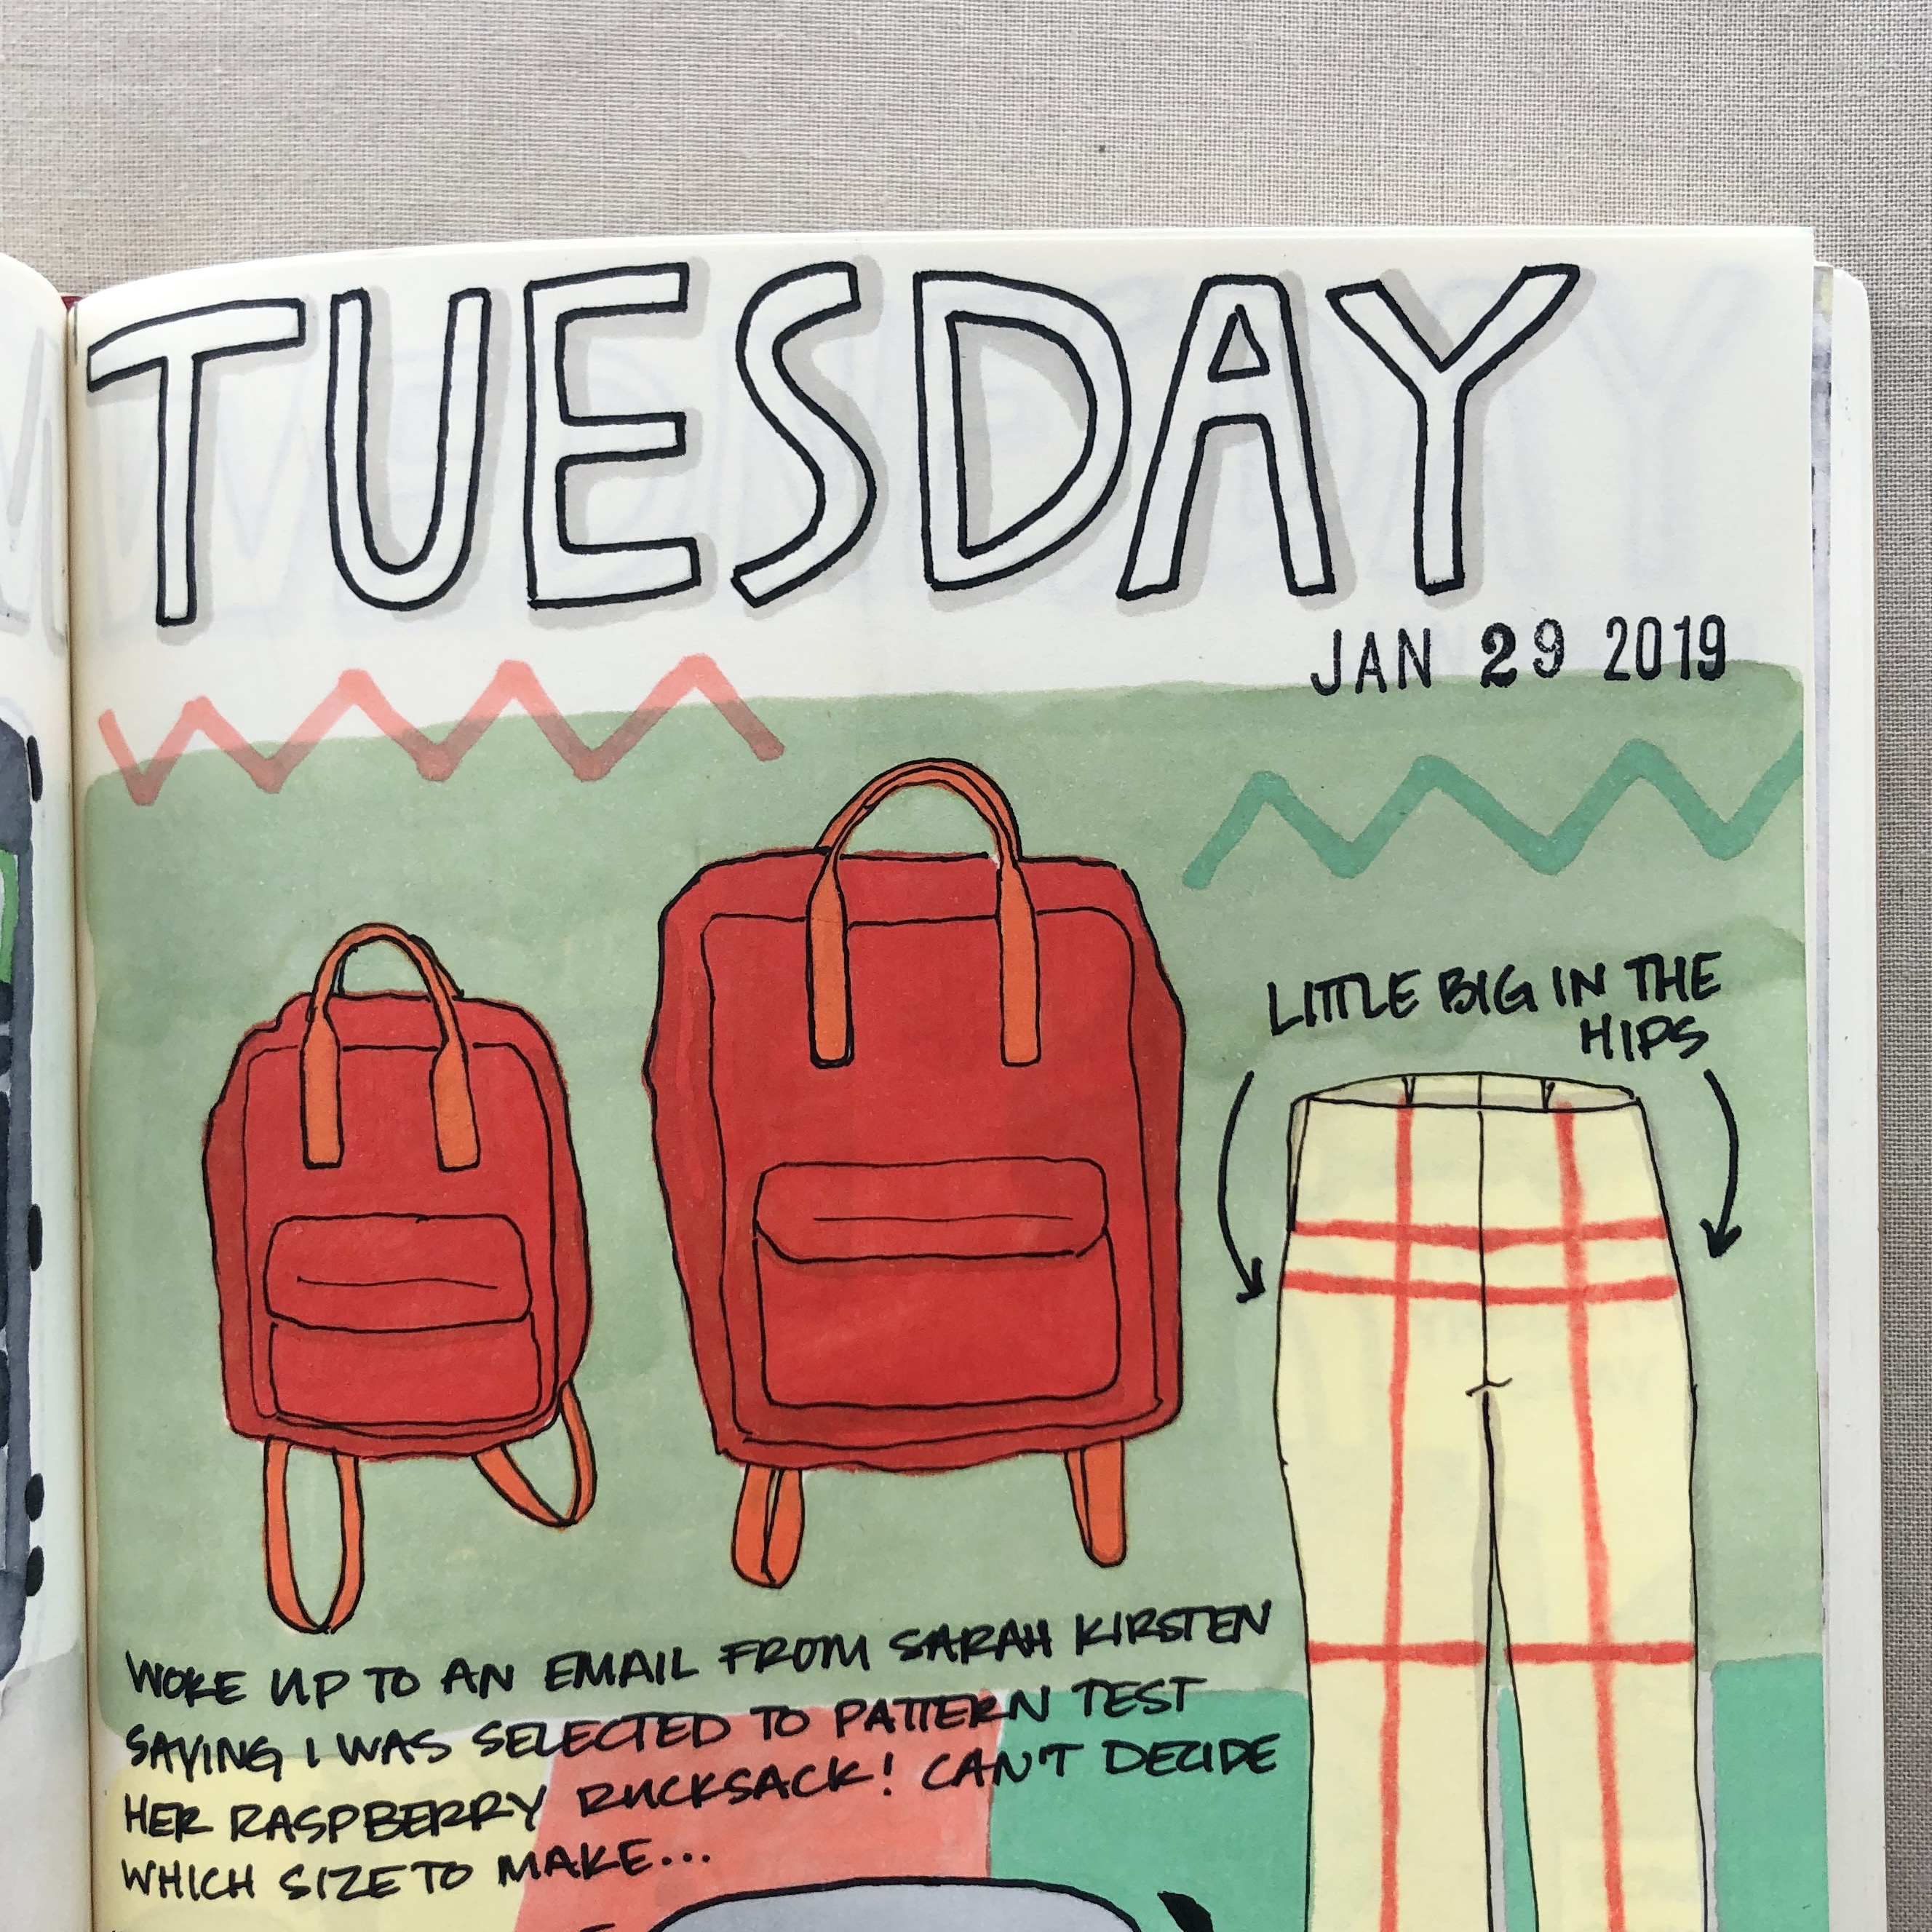 TUESDAY
JAN 29 2019
LITTLE BIG IN THE
HIPS
WOKE UP TO AN EMAIL FROM SARAH KIRSTEN
SAYING I WAS SELECTED TO PATTERN TEST
HER RASPBERRY RUCKSACK! CAN'T DECIDE
WHICH SIZE TO MAKE...